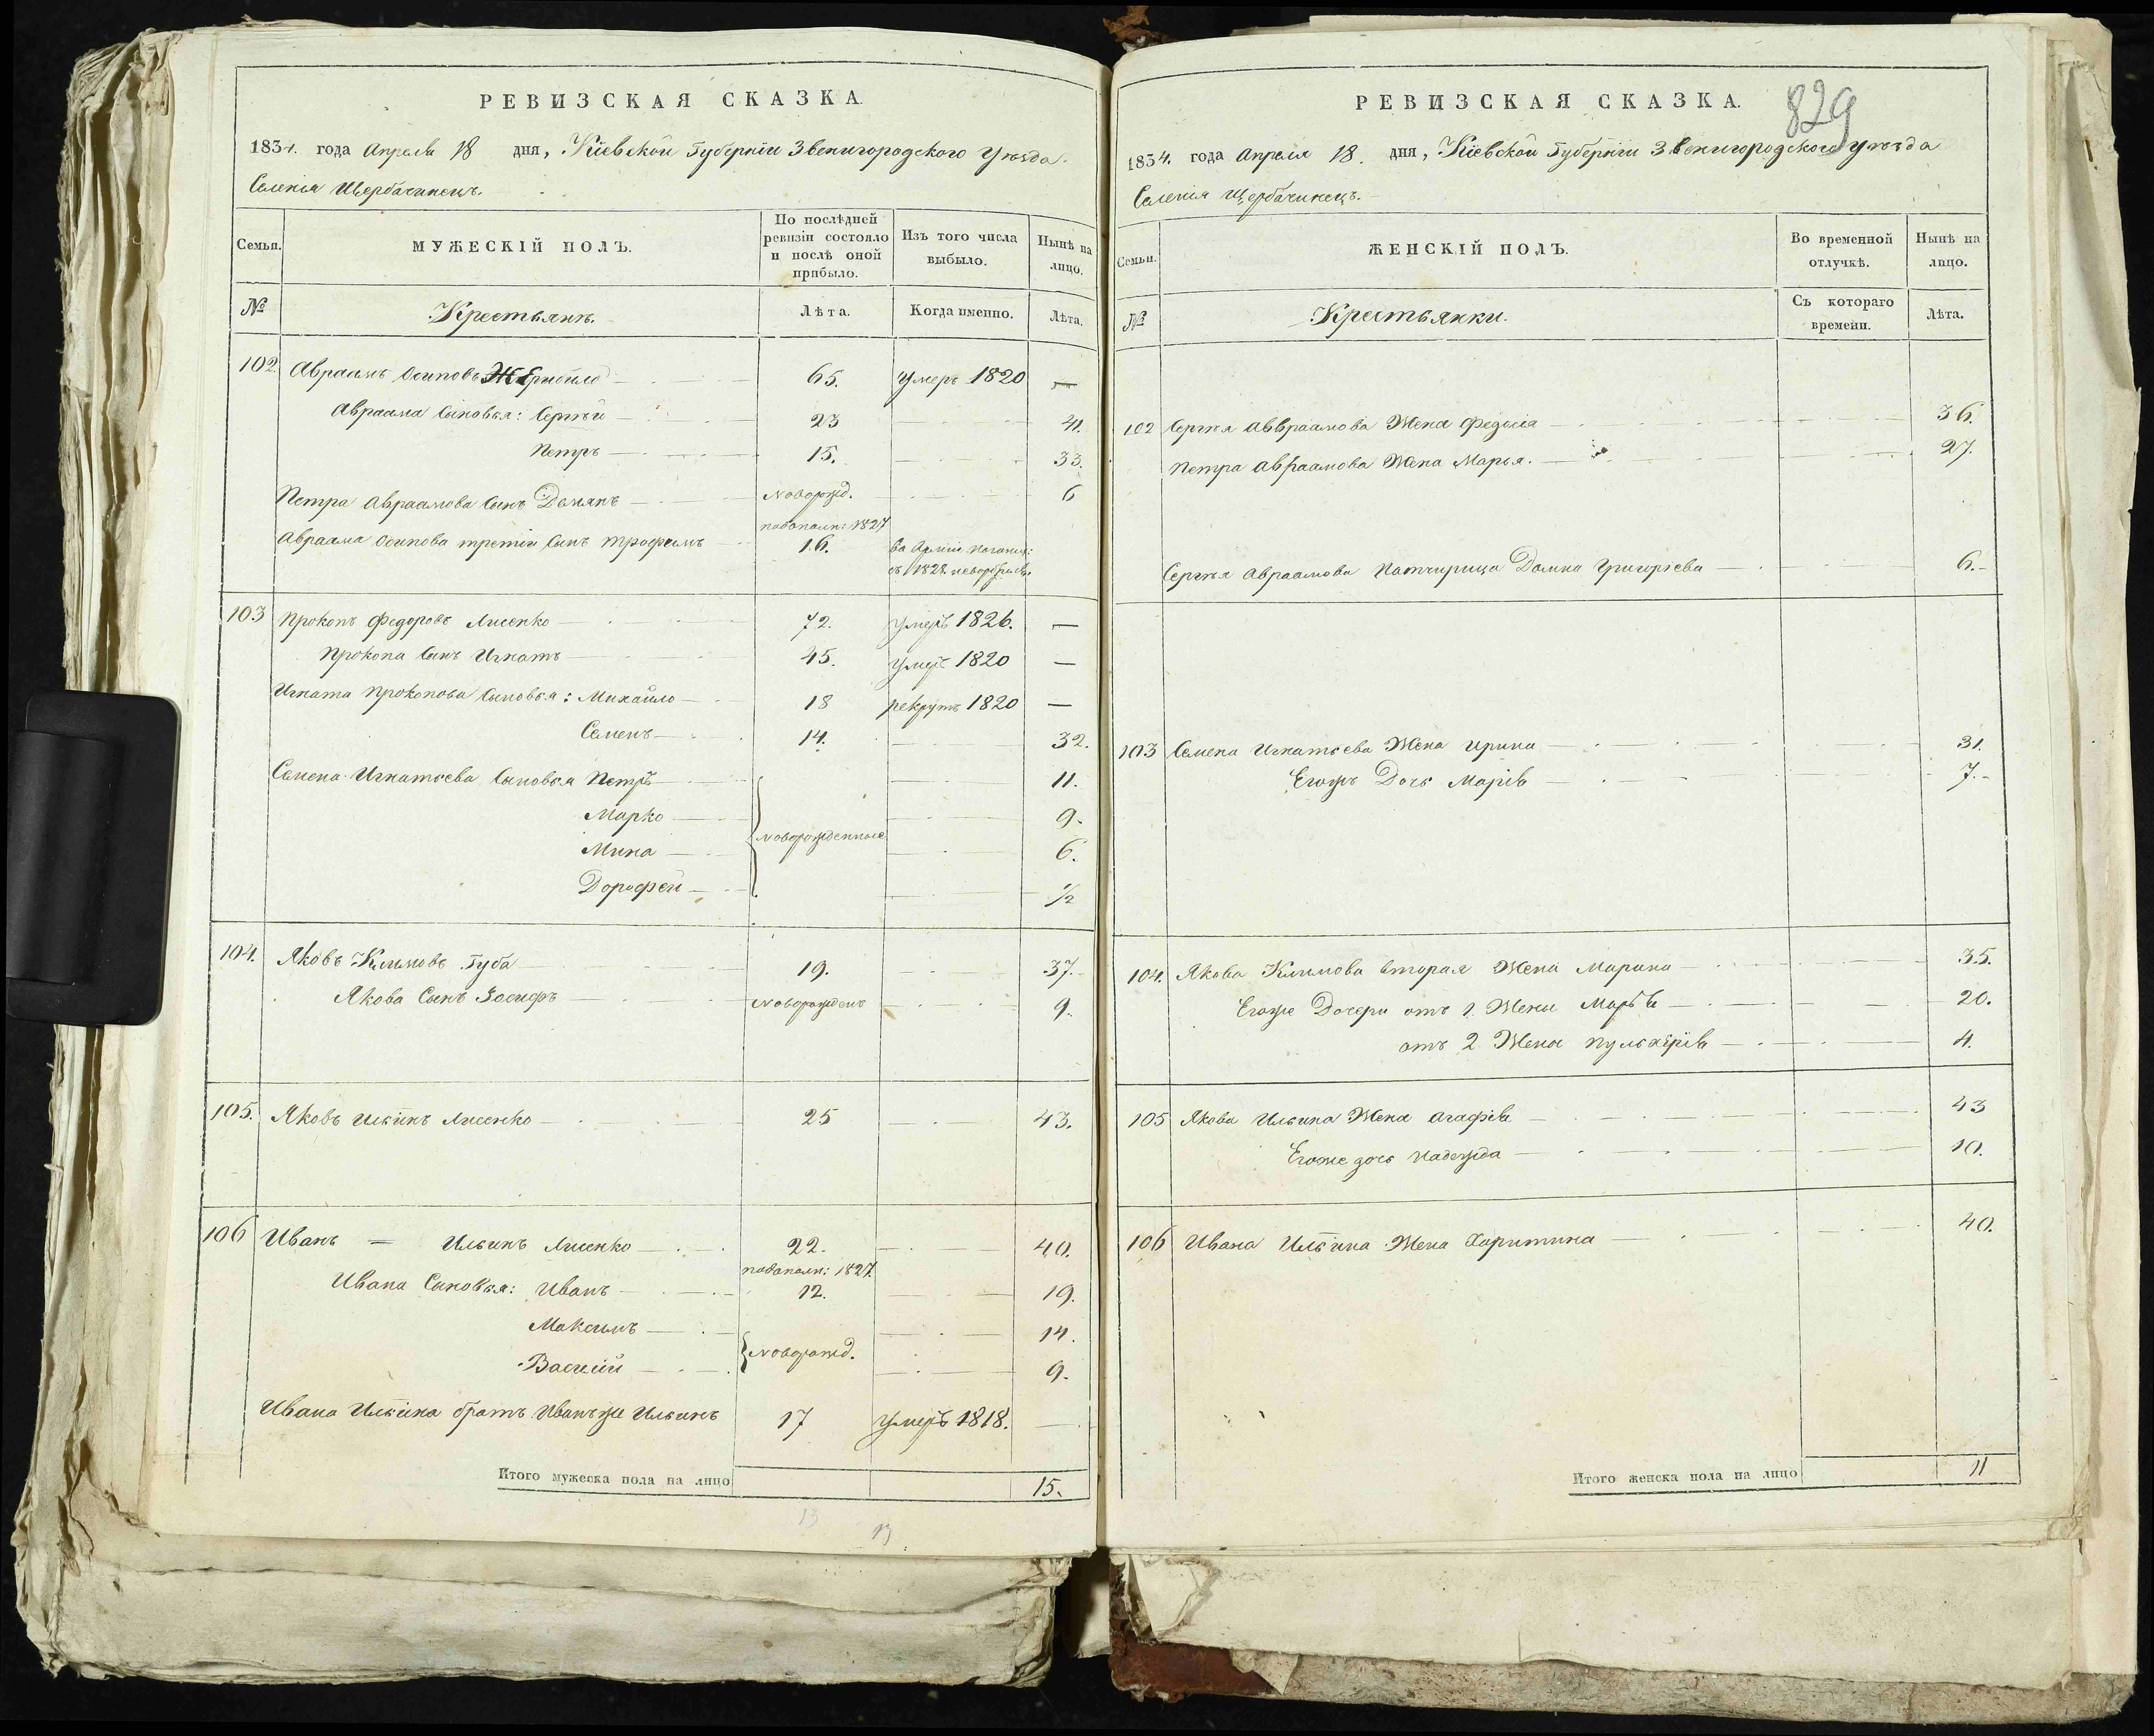 РЕВИЗСКАЯ СКАЗКА.
1834. года Апреля 18 дня, Кіевской Губерніи Звенигородского Уѣзда.
Селенія Щербачинецъ.
Семьи. МУЖЕСКІЙ ПОЛЪ. По послѣдней ревизіи состояло и послѣ оной прибыло. Изъ того числа выбыло. Нынѣ на лицо.
№ Крестьянъ. Лѣта. Когда именно. Лѣта.
102. Авраамъ Осиповъ 65. умеръ 1820 —
Авраама Сыновья: Сергѣй — 23 — 41.
Петръ — 15. — 33.
Петра Авраамова Сынъ Демянъ — новорожд. — 6
1827
Авраама Осипова третій Сынъ Трофимъ 16.
1828.
103 Прокопъ Федоровъ Лисенко — 72. умеръ 1826. —
Прокопа Сынъ Игнатъ — 45. умеръ 1820 —
Игната Прокопова Сыновья: Михайло — 18 рекрутъ 1820 —
Семенъ — 14. — 32.
Семена Игнатьева Сыновья Петръ — 11.
Марко — 9.
новорожденные
Мина — 6.
Дорофей — 1/2
104. Яковъ Климовъ Губа — 19. — 37.
Якова Сынъ Іосифъ — новорожденъ — 9.
105. Яковъ Ильинъ Лисенко — 25 — 43.
106 Иванъ = Ильинъ Лисенко — 22. — 40.
1827.
Ивана Сыновья: Иванъ — 12. — 19.
Максимъ — 14.
новорожд.
Василій — 9.
Ивана Ильина братъ Иванъже Ильинъ 17 умеръ 1818. —
Итого мужеска пола на лицо 15.
13
13
829
РЕВИЗСКАЯ СКАЗКА.
1834. года Апреля 18. дня, Кіевской Губерніи Звенигородского Уѣзда
Селенія Щербачинецъ.
Семьи. ЖЕНСКІЙ ПОЛЪ. Во временной отлучкѣ. Нынѣ на лицо.
№ Крестьянки. Съ котораго времени. Лѣта.
102 Сергѣя Авраамова Жена Федосія — 36.
Петра Авраамова Жена Марья. — 27.
Сергѣя Авраамова Домна Григорьева — 6.
103 Семена Игнатьева Жена Ирина — 31.
Егожъ Дочь Марія — 7.
104. Якова Климова вторая Жена Марина — 35.
Егоже Дочери отъ 1 Жены Марья — 20.
отъ 2 Жены Пульхерія — 4.
105 Якова Ильина Жена Агафія — 43
Егоже дочь Надежда — 10.
106 Ивана Ильина Жена Харитина — 40.
Итого женска пола на лицо 11